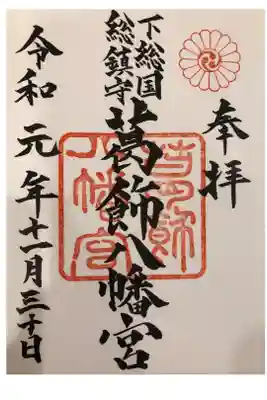 奉拝
下総国
総鎮守
葛飾八幡宮
令和元年十一月三十日
葛飾
八幡宮